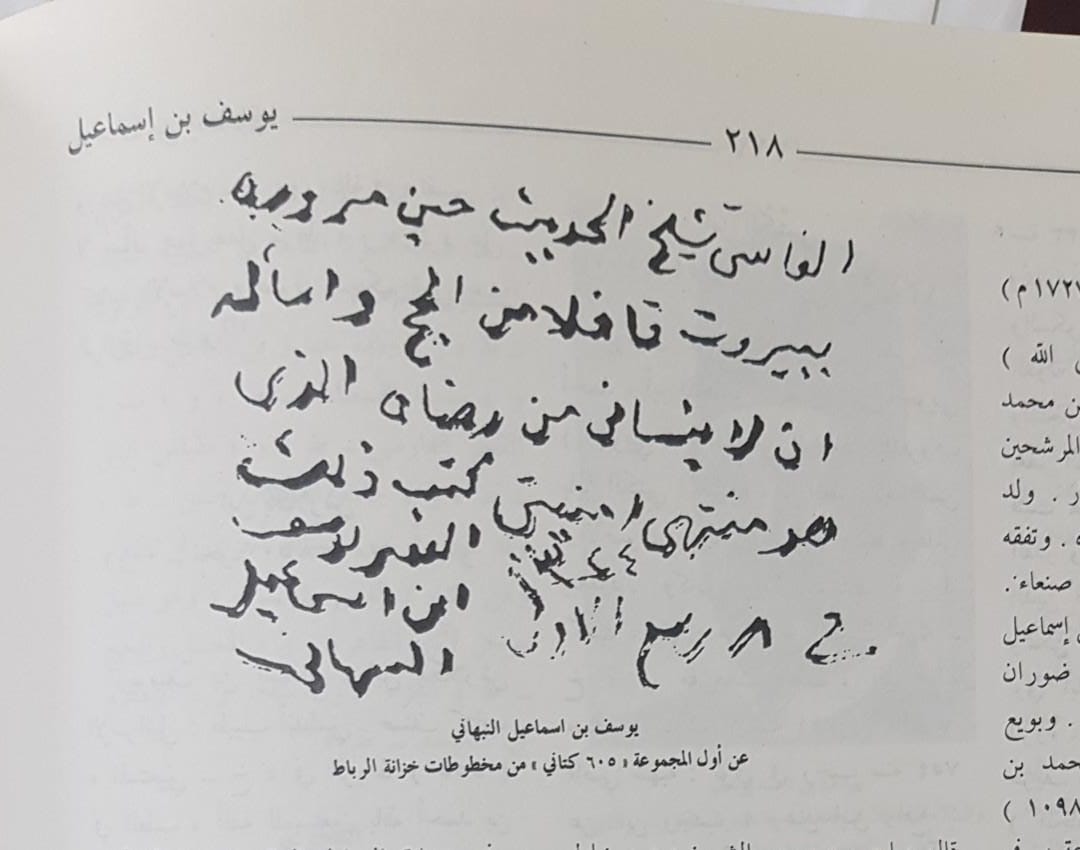 يوسف بن إسماعيل
٢١٨
الفاسي شيخ الحديث حين مروره
ببيروت قافلا من الحج واسأله
ان لا ينساني من رضاه الذي
هو منتهى امنيتي كتب ذلك
الفقير يوسف
في ٨ ربيع الاول
ابن اسماعيل
النبهاني
يوسف بن اسماعيل النبهاني
عن أول المجموعة « ٦٠٥ كتاني » من مخطوطات خزانة الرباط
١٧٢٧ م )
الله )
ن محمد
المرشحين
ر . ولد
ه . وتفقه
صنعاء.
إسماعيل
ضوران
. وبويع
حمد بن
١٠٩٨ )